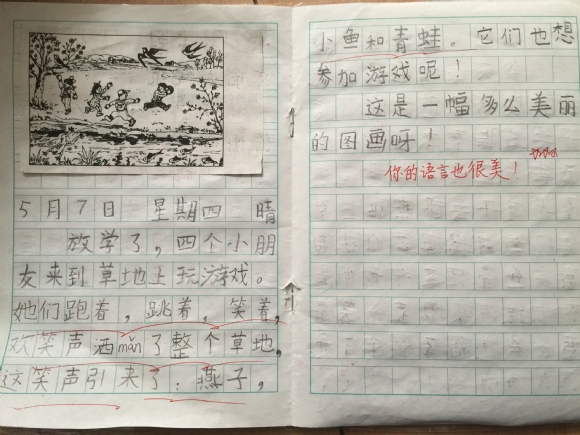 5月7日 星期四 晴
放学了,四个小朋
友来到草地上玩游戏。
她们跑着,跳着,笑着,
欢笑声洒mǎn了整个草地,
这笑声引来了:燕子,
小鱼和青蛙。它们也想
参加游戏呢!
这是一幅多么美丽
的图画呀!
你的语言也很美!